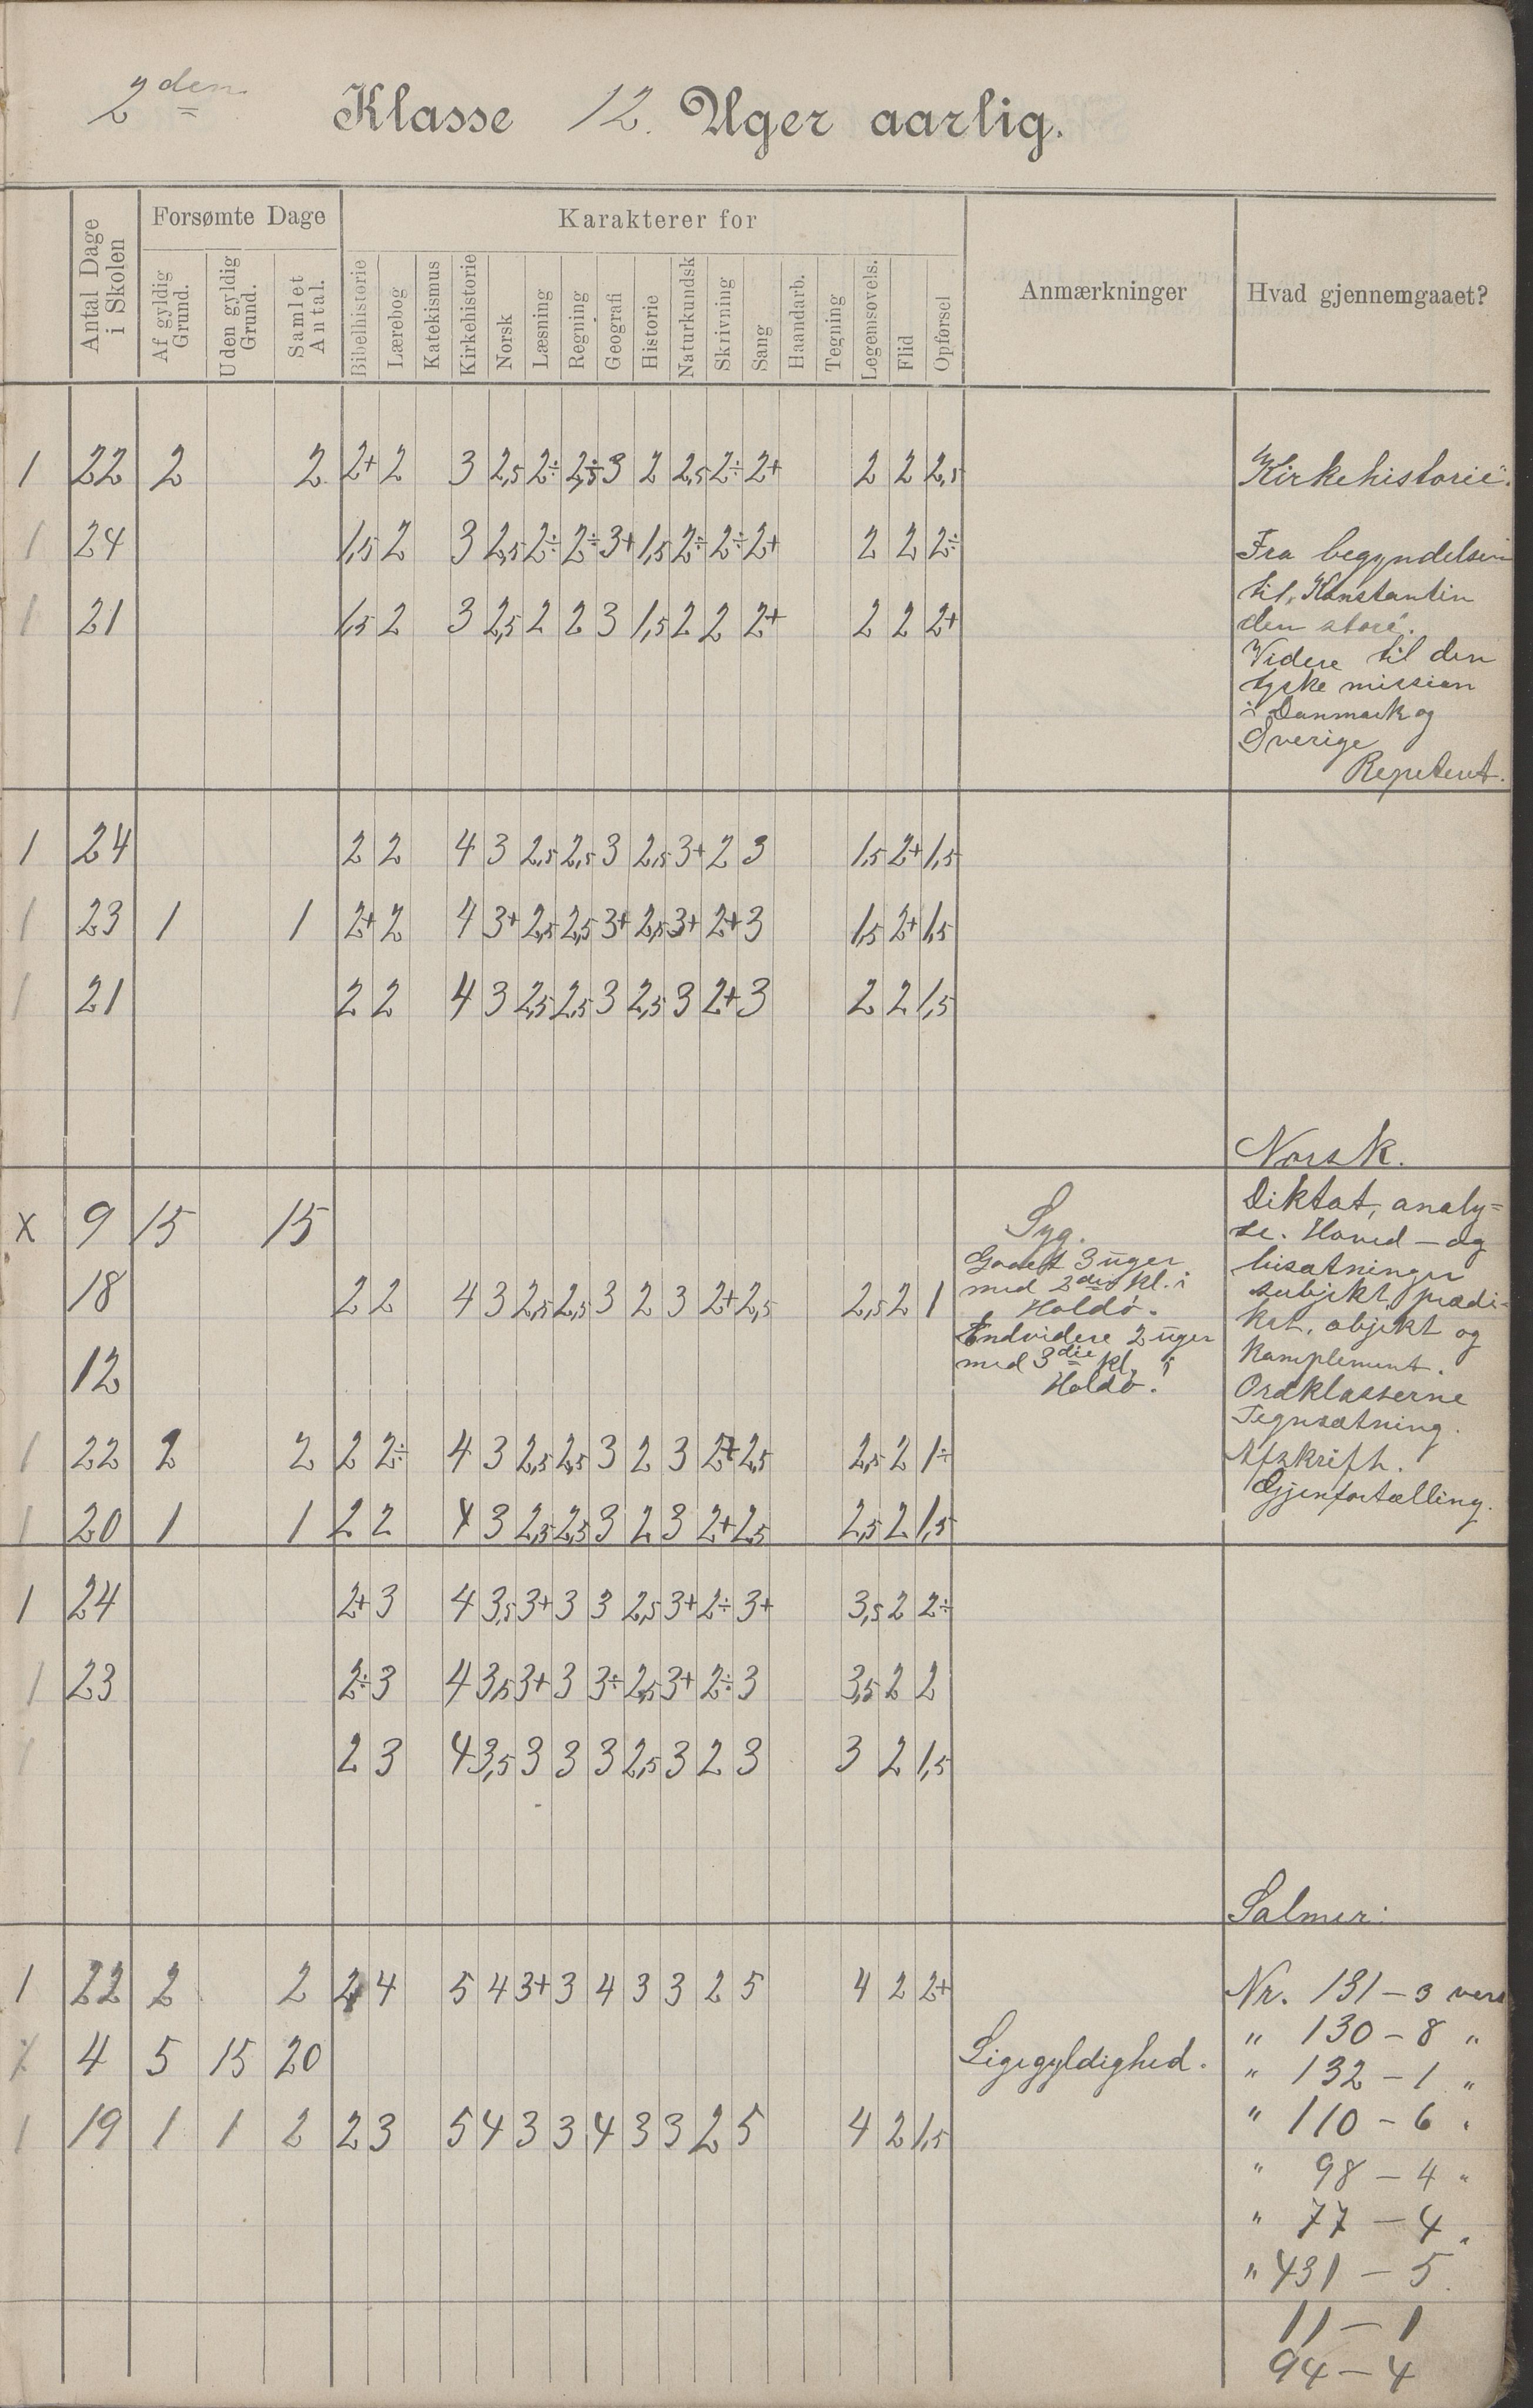 2den Klasse 12. Uger aarlig.
Antal Dage i Skolen
Forsømte Dage
Af gyldig Grund.
Uden gyldig Grund.
Samlet Antal.
Karakterer for
Bibelhistorie
Lærebog
Katekismus
Kirkehistorie
Norsk
Læsning
Regning
Geografi
Historie
Naturkundsk
Skrivning
Sang
Haandarb.
Tegning
Legemsøvels.
Flid
Opførsel
Anmærkninger
Hvad gjennemgaaet?
1 22 2 2 2+ 2 3 2,5 2÷ 2,5÷ 3 2 2,5 2÷ 2+ 2 2 2,5
Kirkehistorie.
1 24 1,5 2 3 2,5 2÷ 2÷ 3+ 1,5 2÷ 2÷ 2+ 2 2 2÷
Fra begyndelsen
til Konstantin
1 21 1,5 2 3 2,5 2 2 3 1,5 2 2 2+ 2 2 2+
den store.
Videre til den
tyske mission
i Danmark og
Sverige
Repetert.
1 24 2 2 4 3 2,5 2,5 3 2,5 3+ 2 3 1,5 2+ 1,5
1 23 1 1 2+ 2 4 3+ 2,5 2,5 3+ 2,5 3+ 2+ 3 1,5 2+ 1,5
1 21 2 2 4 3 2,5 2,5 3 2,5 3 2+ 3 2 2 1,5
Norsk.
x 9 15 15
Syg.
Gaaet 3 uger
med 2den kl. i
Holdö.
Endvidere 2 uger
med 3die kl. i
Holdö.
Diktat, analy=
se. Hoved - og
bisætninger
subjekt, prædi=
kat, objekt og
komplement.
Ordklasserne
Tegnsætning.
Afskrift.
Gjenfortælling.
18 2 2 4 3 2,5 2,5 3 2 3 2+ 2,5 2,5 2 1
12
1 22 2 2 2 2÷ 4 3 2,5 2,5 3 2 3 2+ 2,5 2,5 2 1÷
1 20 1 1 2 2 4 3 2,5 2,5 3 2 3 2+ 2,5 2,5 2 1,5
1 24 2+ 3 4 3,5 3+ 3 3 2,5 3+ 2÷ 3+ 3,5 2 2÷
1 23 2÷ 3 4 3,5 3+ 3 3÷ 2,5 3+ 2÷ 3 3,5 2 2
1 2 3 4 3,5 3 3 3 2,5 3 2 3 3 2 1,5
Salmer:
1 22 2 2 2 4 5 4 3+ 3 4 3 3 2 5 4 2 2+
Nr. 131 - 3 vers
x 4 5 15 20 Ligegyldighed.
" 130 - 8 "
" 132 - 1 "
1 19 1 1 2 2 3 5 4 3 3 4 3 3 2 5 4 2 1,5
" 110 - 6 "
" 98 - 4 "
" 77 - 4 "
" 431 - 5
11 - 1
94 - 4